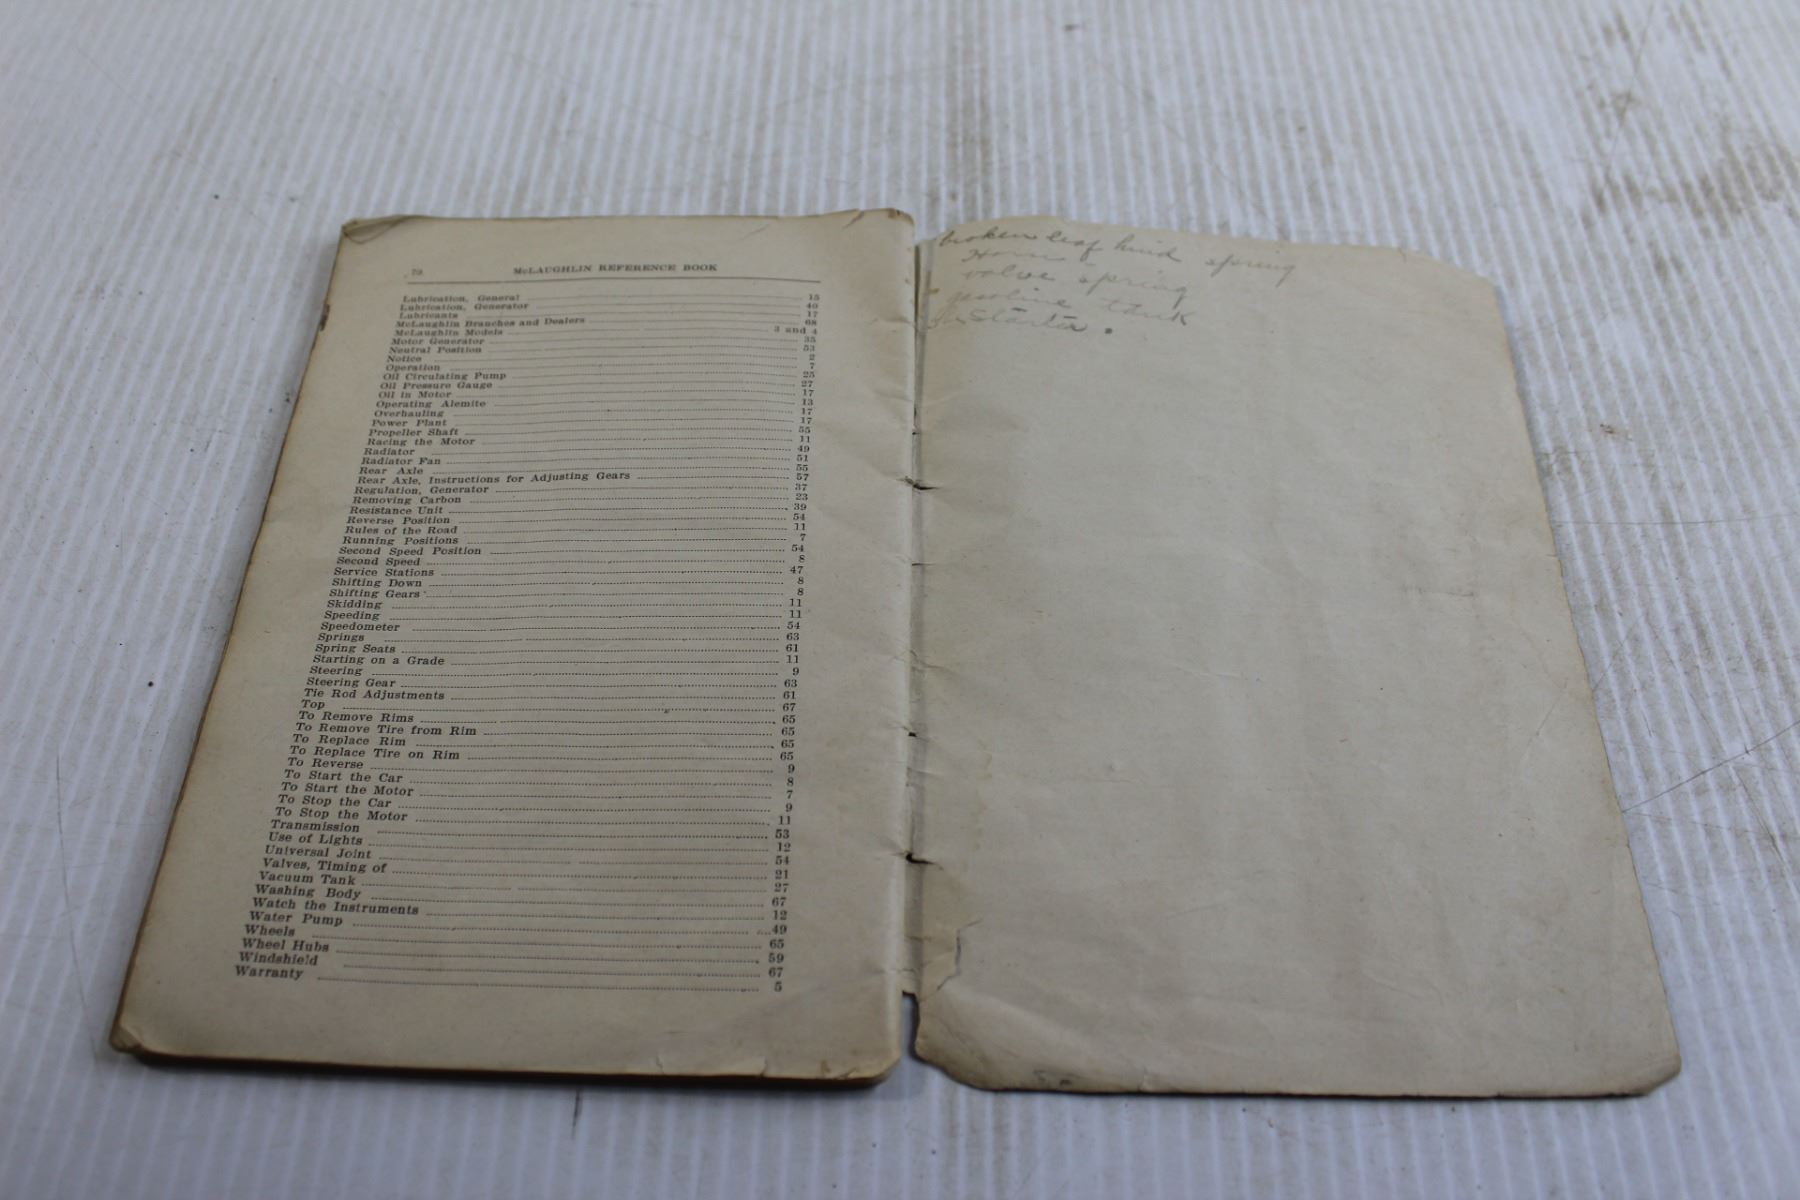 70 McLAUGHLIN REFERENCE BOOK
Lubrication, General 15
Lubrication, Generator 40
Lubricants 17
McLaughlin Branches and Dealers 68
McLaughlin Models 3 and 4
Motor Generator 35
Neutral Position 53
Notice 2
Operation 7
Oil Circulating Pump 25
Oil Pressure Gauge 27
Oil in Motor 17
Operating Alemite 13
Overhauling 17
Power Plant 17
Propeller Shaft 55
Racing the Motor 11
Radiator 49
Radiator Fan 51
Rear Axle 55
Rear Axle, Instructions for Adjusting Gears 57
Regulation, Generator 37
Removing Carbon 23
Resistance Unit 39
Reverse Position 54
Rules of the Road 11
Running Positions 7
Second Speed Position 54
Second Speed 8
Service Stations 47
Shifting Down 8
Shifting Gears 8
Skidding 11
Speeding 11
Speedometer 54
Springs 63
Spring Seats 61
Starting on a Grade 11
Steering 9
Steering Gear 63
Tie Rod Adjustments 61
Top 67
To Remove Rims 65
To Remove Tire from Rim 65
To Replace Rim 65
To Replace Tire on Rim 65
To Reverse 9
To Start the Car 8
To Start the Motor 7
To Stop the Car 9
To Stop the Motor 11
Transmission 53
Use of Lights 12
Universal Joint 54
Valves, Timing of 21
Vacuum Tank 27
Washing Body 67
Watch the Instruments 12
Water Pump 49
Wheels 65
Wheel Hubs 59
Windshield 67
Warranty 5
broken leaf hind spring
Horn
valve spring
gasoline tank
Starter.